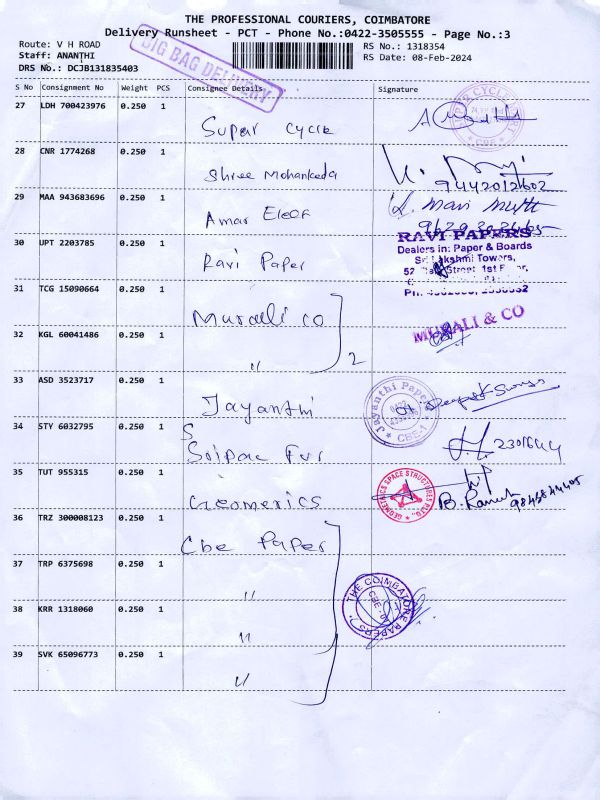 THE PROFESSIONAL COURIERS, COIMBATORE
Delivery Runsheet - PCT - Phone No.:0422-3505555 - Page No.:3
Route: V H ROAD
RS No.: 1318354
Staff: ANANTHI
RS Date: 08-Feb-2024
DRS No.: DCJB131835403
BIG BAG DELIVERY
S No Consignment No Weight PCS Consignee Details Signature
27 LDH 700423976 0.250 1
Super Cycle
28 CNR 1774268 0.250 1
Shree Mohankeda
9442012602
29 MAA 943683696 0.250 1
Amar Elect
30 UPT 2203785 0.250 1
Ravi Paper
RAVI PAPERS
Dealers in: Paper & Boards
Sri Lakshmi Towers,
31 TCG 15090664 0.250 1
Muralli co
MURALI & CO
32 KGL 60041486 0.250 1
"
2
33 ASD 3523717 0.250 1
Jayanthi
Jayanthi Paper
CBE-1
34 STY 6032795 0.250 1
S
Sripac Fur
35 TUT 955315 0.250 1
Geomerics
GEOMETRICS SPACE STRUCTURES
36 TRZ 300008123 0.250 1
Cbe Paper
37 TRP 6375698 0.250 1
"
THE COIMBATORE PAPERS
38 KRR 1318060 0.250 1
"
39 SVK 65096773 0.250 1
"